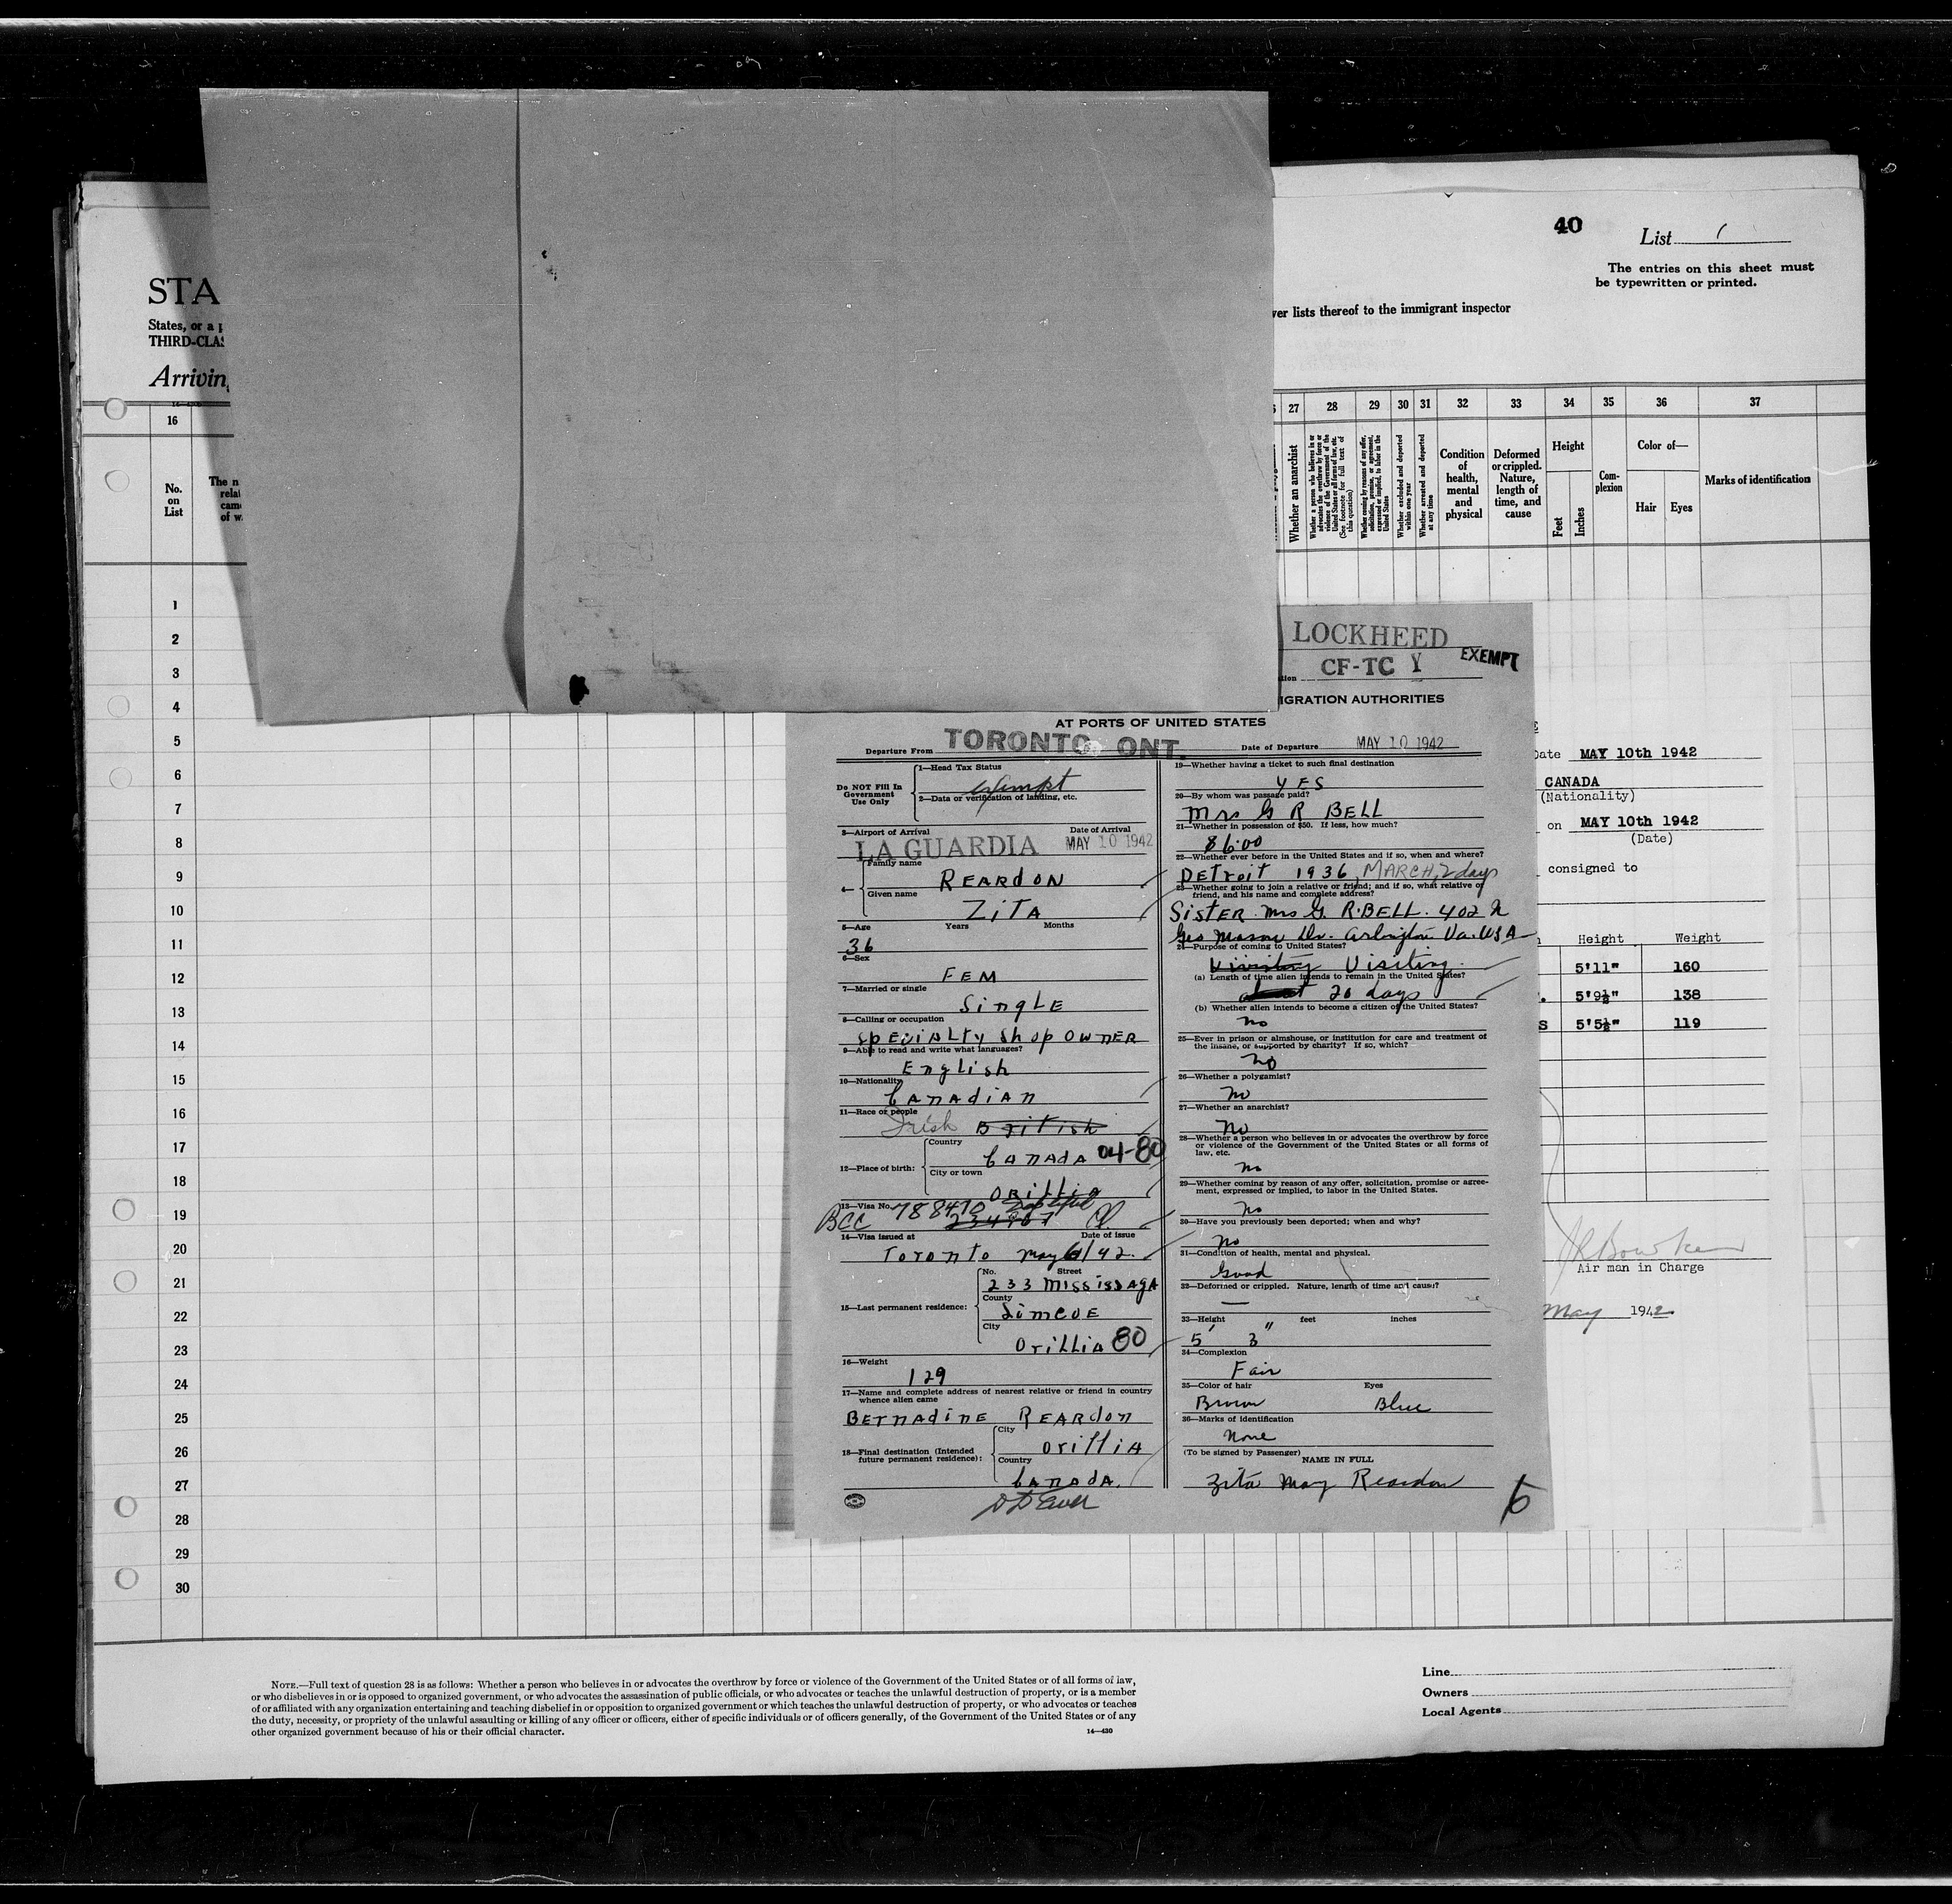 40
List 1
The entries on this sheet must
be typewritten or printed.
STA
States, or a p
THIRD-CLAS
ver lists thereof to the immigrant inspector
Arrivin
16
27 28 29 30 31 32 33 34 35 36 37
No.
on
List
The n
relat
came
of w
Whether an anarchist
Whether a person who believes in or
advocates the overthrow by force or
violence of the Government of the
United States or all forms of law, etc.
(See footnote for full text of
this question)
Whether coming by reasons of any offer,
solicitation, promise, or agreement,
expressed or implied, to labor in the
United States
Whether excluded and deported
within one year
Whether arrested and deported
at any time
Condition
of
health,
mental
and
physical
Deformed
or crippled.
Nature,
length of
time, and
cause
Height
Feet
Inches
Com-
plexion
Color of—
Hair Eyes
Marks of identification
1
2
3
4
5
6
7
8
9
10
11
12
13
14
15
16
17
18
19
20
21
22
23
24
25
26
27
28
29
30
LOCKHEED
CF-TC Y EXEMPT
IGRATION AUTHORITIES
AT PORTS OF UNITED STATES
Departure From TORONTO, ONT. Date of Departure MAY 10 1942
Do NOT Fill In
Government
Use Only
1—Head Tax Status
exempt
2—Data or verification of landing, etc.
3—Airport of Arrival Date of Arrival
LA GUARDIA MAY 10 1942
Family name
REARDON
Given name
ZITA
5—Age Years Months
36
6—Sex
FEM
7—Married or single
SingLE
8—Calling or occupation
SpECIALTY Shop OWNER
9—Able to read and write what languages?
English
10—Nationality
CANADIAN
11—Race or people
Irish British
12—Place of birth:
Country
CANADA 04-80
City or town
ORillia
13—Visa No. 788470
BCC 234967
14—Visa issued at Date of issue
Toronto May 6/42.
15—Last permanent residence:
No. Street
233 MississAgA
County
SimcoE
City
OrilliA 80
16—Weight
129
17—Name and complete address of nearest relative or friend in country
whence alien came
BERNADINE REARDON
18—Final destination (Intended
future permanent residence):
City
OrilliA
Country
CANADA.
19—Whether having a ticket to such final destination
YES
20—By whom was passage paid?
Mrs G R BELL
21—Whether in possession of $50. If less, how much?
$6.00
22—Whether ever before in the United States and if so, when and where?
DETroit 1936, MARCH, 2 days
23—Whether going to join a relative or friend; and if so, what relative or
friend, and his name and complete address?
SiSTER Mrs G. R. BELL. 402 N
Geo Mason Dr. Arlington Va. USA
24—Purpose of coming to United States?
Visiting Visiting.
(a) Length of time alien intends to remain in the United States?
about 20 days
(b) Whether alien intends to become a citizen of the United States?
no
25—Ever in prison or almshouse, or institution for care and treatment of
the insane, or supported by charity? If so, which?
no
26—Whether a polygamist?
no
27—Whether an anarchist?
No
28—Whether a person who believes in or advocates the overthrow by force
or violence of the Government of the United States or all forms of
law, etc.
no
29—Whether coming by reason of any offer, solicitation, promise or agree-
ment, expressed or implied, to labor in the United States.
no
30—Have you previously been deported; when and why?
no
31—Condition of health, mental and physical.
Good
32—Deformed or crippled. Nature, length of time and cause?
—
33—Height feet inches
5' 3"
34—Complexion
Fair
35—Color of hair Eyes
Brown Blue
36—Marks of identification
None
(To be signed by Passenger)
NAME IN FULL
Zita May Reardon
6
Date MAY 10th 1942
CANADA
(Nationality)
on MAY 10th 1942
(Date)
consigned to
Height Weight
5'11" 160
5'9½" 138
S 5'5½" 119
Air man in Charge
May 1942
NOTE.—Full text of question 28 is as follows: Whether a person who believes in or advocates the overthrow by force or violence of the Government of the United States or of all forms of law,
or who disbelieves in or is opposed to organized government, or who advocates the assassination of public officials, or who advocates or teaches the unlawful destruction of property, or is a member
of or affiliated with any organization entertaining and teaching disbelief in or opposition to organized government or which teaches the unlawful destruction of property, or who advocates or teaches
the duty, necessity, or propriety of the unlawful assaulting or killing of any officer or officers, either of specific individuals or of officers generally, of the Government of the United States or of any
other organized government because of his or their official character.
14—430
Line
Owners
Local Agents